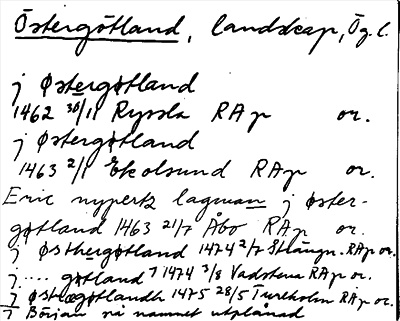 Östergötland, landskap, Ög. l.
j Østergøtland
1462 30/11 Ryssla RAp or.
j Østergøtland
1463 2/1 Ekolsund RAp or.
Eric nypertz lagman j øster-
gøtland 1463 21/7 Åbo RAp or.
j Østhergøtland 1474 2/7 Strängn. RAp or.
j..... gøtland 1 1474 3/8 Vadstena RAp or.
j østægøtlandh 1475 28/5 Tureholm RAp or.
1 Början av namnet utplånad